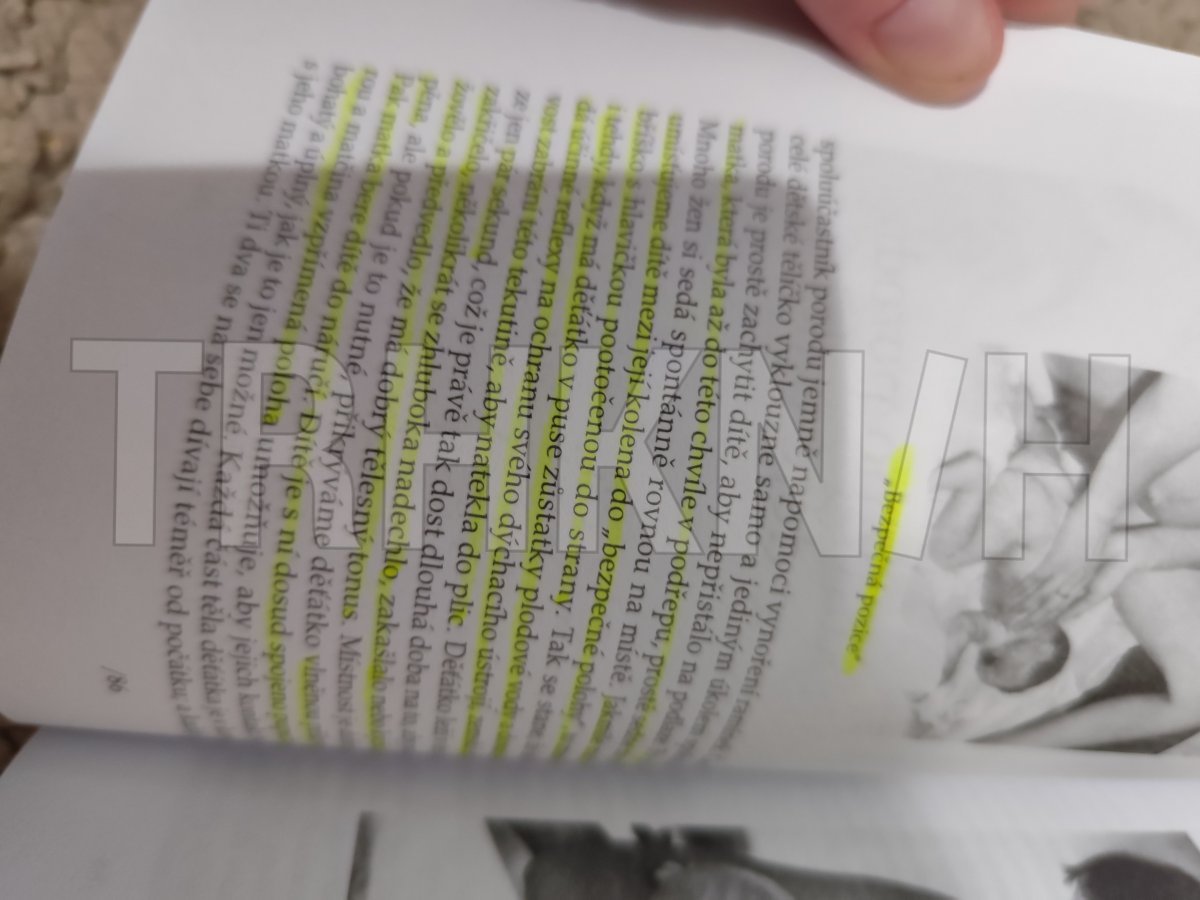 „Bezpečná pozice“
spoluúčastník porodu jemně napomoci vynoření
celé dětské tělíčko vyklouzne samo a jediným úkolem
porodu je prostě zachytit dítě, aby nepřistálo na
matka, která byla až do této chvíle v podřepu, prostě
Mnoho žen si sedá spontánně rovnou na místě,
umisťujeme dítě mezi její kolena do „bezpečné polohy“,
bříško s hlavičkou pootočenou do strany. Tak se stane
i tehdy, když má děťátko v puse zůstatky plodové vody
dá účinné reflexy na ochranu svého dýchacího ústrojí,
vost zabrání této tekutině, aby natekla do plic. Děťátko
ze jen pár sekund, což je právě tak dost dlouhá doba na to,
zakřičelo, několikrát se zhluboka nadechlo, zakašlalo
živělo a předvedlo, že má dobrý tělesný tonus. Místnost je
plna, ale pokud je to nutné, přikrýváme děťátko vlněnou
Pak matka bere dítě do náručí. Dítě je s ní dosud spojeno
rou a matčina vzpřímená poloha umožňuje, aby jejich
bohatý a úplný, jak je to jen možné. Každá část těla děťátka
s jeho matkou. Ti dva se na sebe dívají téměř od počátku a
/86
TR/HKN/H